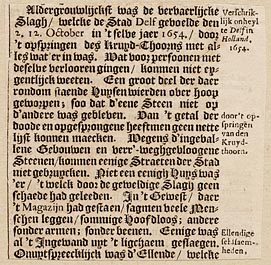 Aldergrouwlijckst was de vervaerlijcke
Slagh / welke de Stad Delf gevoelde den
2, 12. October in 't selve jaer 1654. / door
't opspringen des Kruyd-Thoorns met al-
les wat'er in was. Wat voor persoonen met
deselve verlooren gingen / konnen niet ey-
gentlijck weeten. Een groot deel der daer
rondom staende Huysen wierden over hoop
geworpen ; soo dat d'eene Steen niet op
d'andere was gebleven. Dan 't getal der
doode en opgesprongene heeft men geen nette
lijst konnen maecken. Wegens d'ingeval-
lene Gebouwen en verr'-weghgevloogene
Steenen / konnen eenige Straeten der Stad
niet gebruycken. Niet een eenigh Huys was
'er / 't welck door de geweldige Slagh geen
schaede had geleeden. In 't Gewest / daer
't Magazijn had gestaen / sagmen veele Men-
schen leggen / sommige Hoofdloos ; andere
sonder armen ; sonder beenen. Eenige was
al 't Ingewand uyt 't lighaem geslaegen.
Onuytspreecklijck was d'Ellende / welcke
Verschrik-
lijk onheyl
te Delf in
Holland,
1654.
door't op-
springen
van den
Kruyd-
thoorn.
Ellendige
lichaem-
heden.